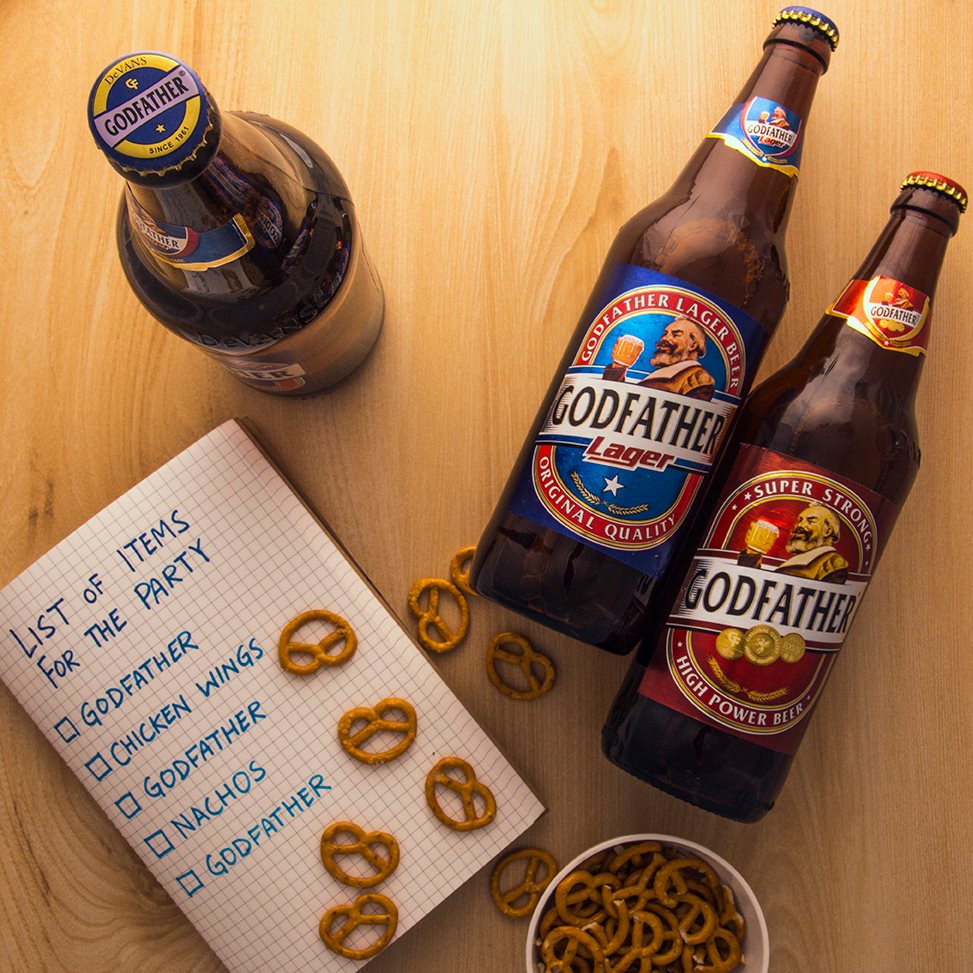 DeVANS
GF
GODFATHER®
SINCE 1961
DeVANS
GODFATHER
Lager
GODFATHER LAGER BEER
GODFATHER
Lager
ORIGINAL QUALITY
GODFATHER
SUPER STRONG
GODFATHER
HIGH POWER BEER
LIST OF ITEMS
FOR THE PARTY
GODFATHER
CHICKEN WINGS
GODFATHER
NACHOS
GODFATHER